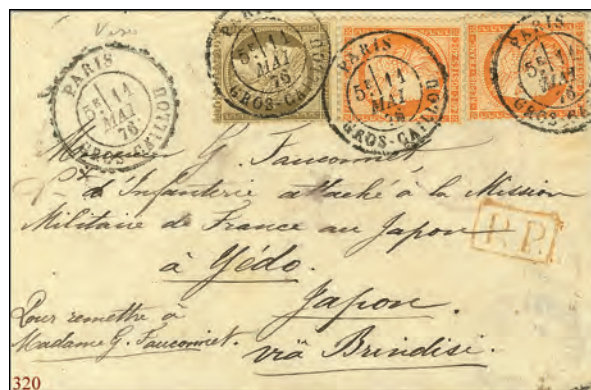 PARIS
5E 11
MAI
76
GROS-CAILLOU
PARIS
5E 11
MAI
76
GROS-CAILLOU
PARIS
5E 11
MAI
76
GROS-CAILLOU
PARIS
5E 11
MAI
76
GROS-CAILLOU
Monsieur G. Fauconnet
d'Infanterie attaché à la Mission
Militaire de France au Japon
à Yédo.
P.P.
Japon.
Pour remettre à
Madame G. Fauconnet.
viâ Brindisi.
320